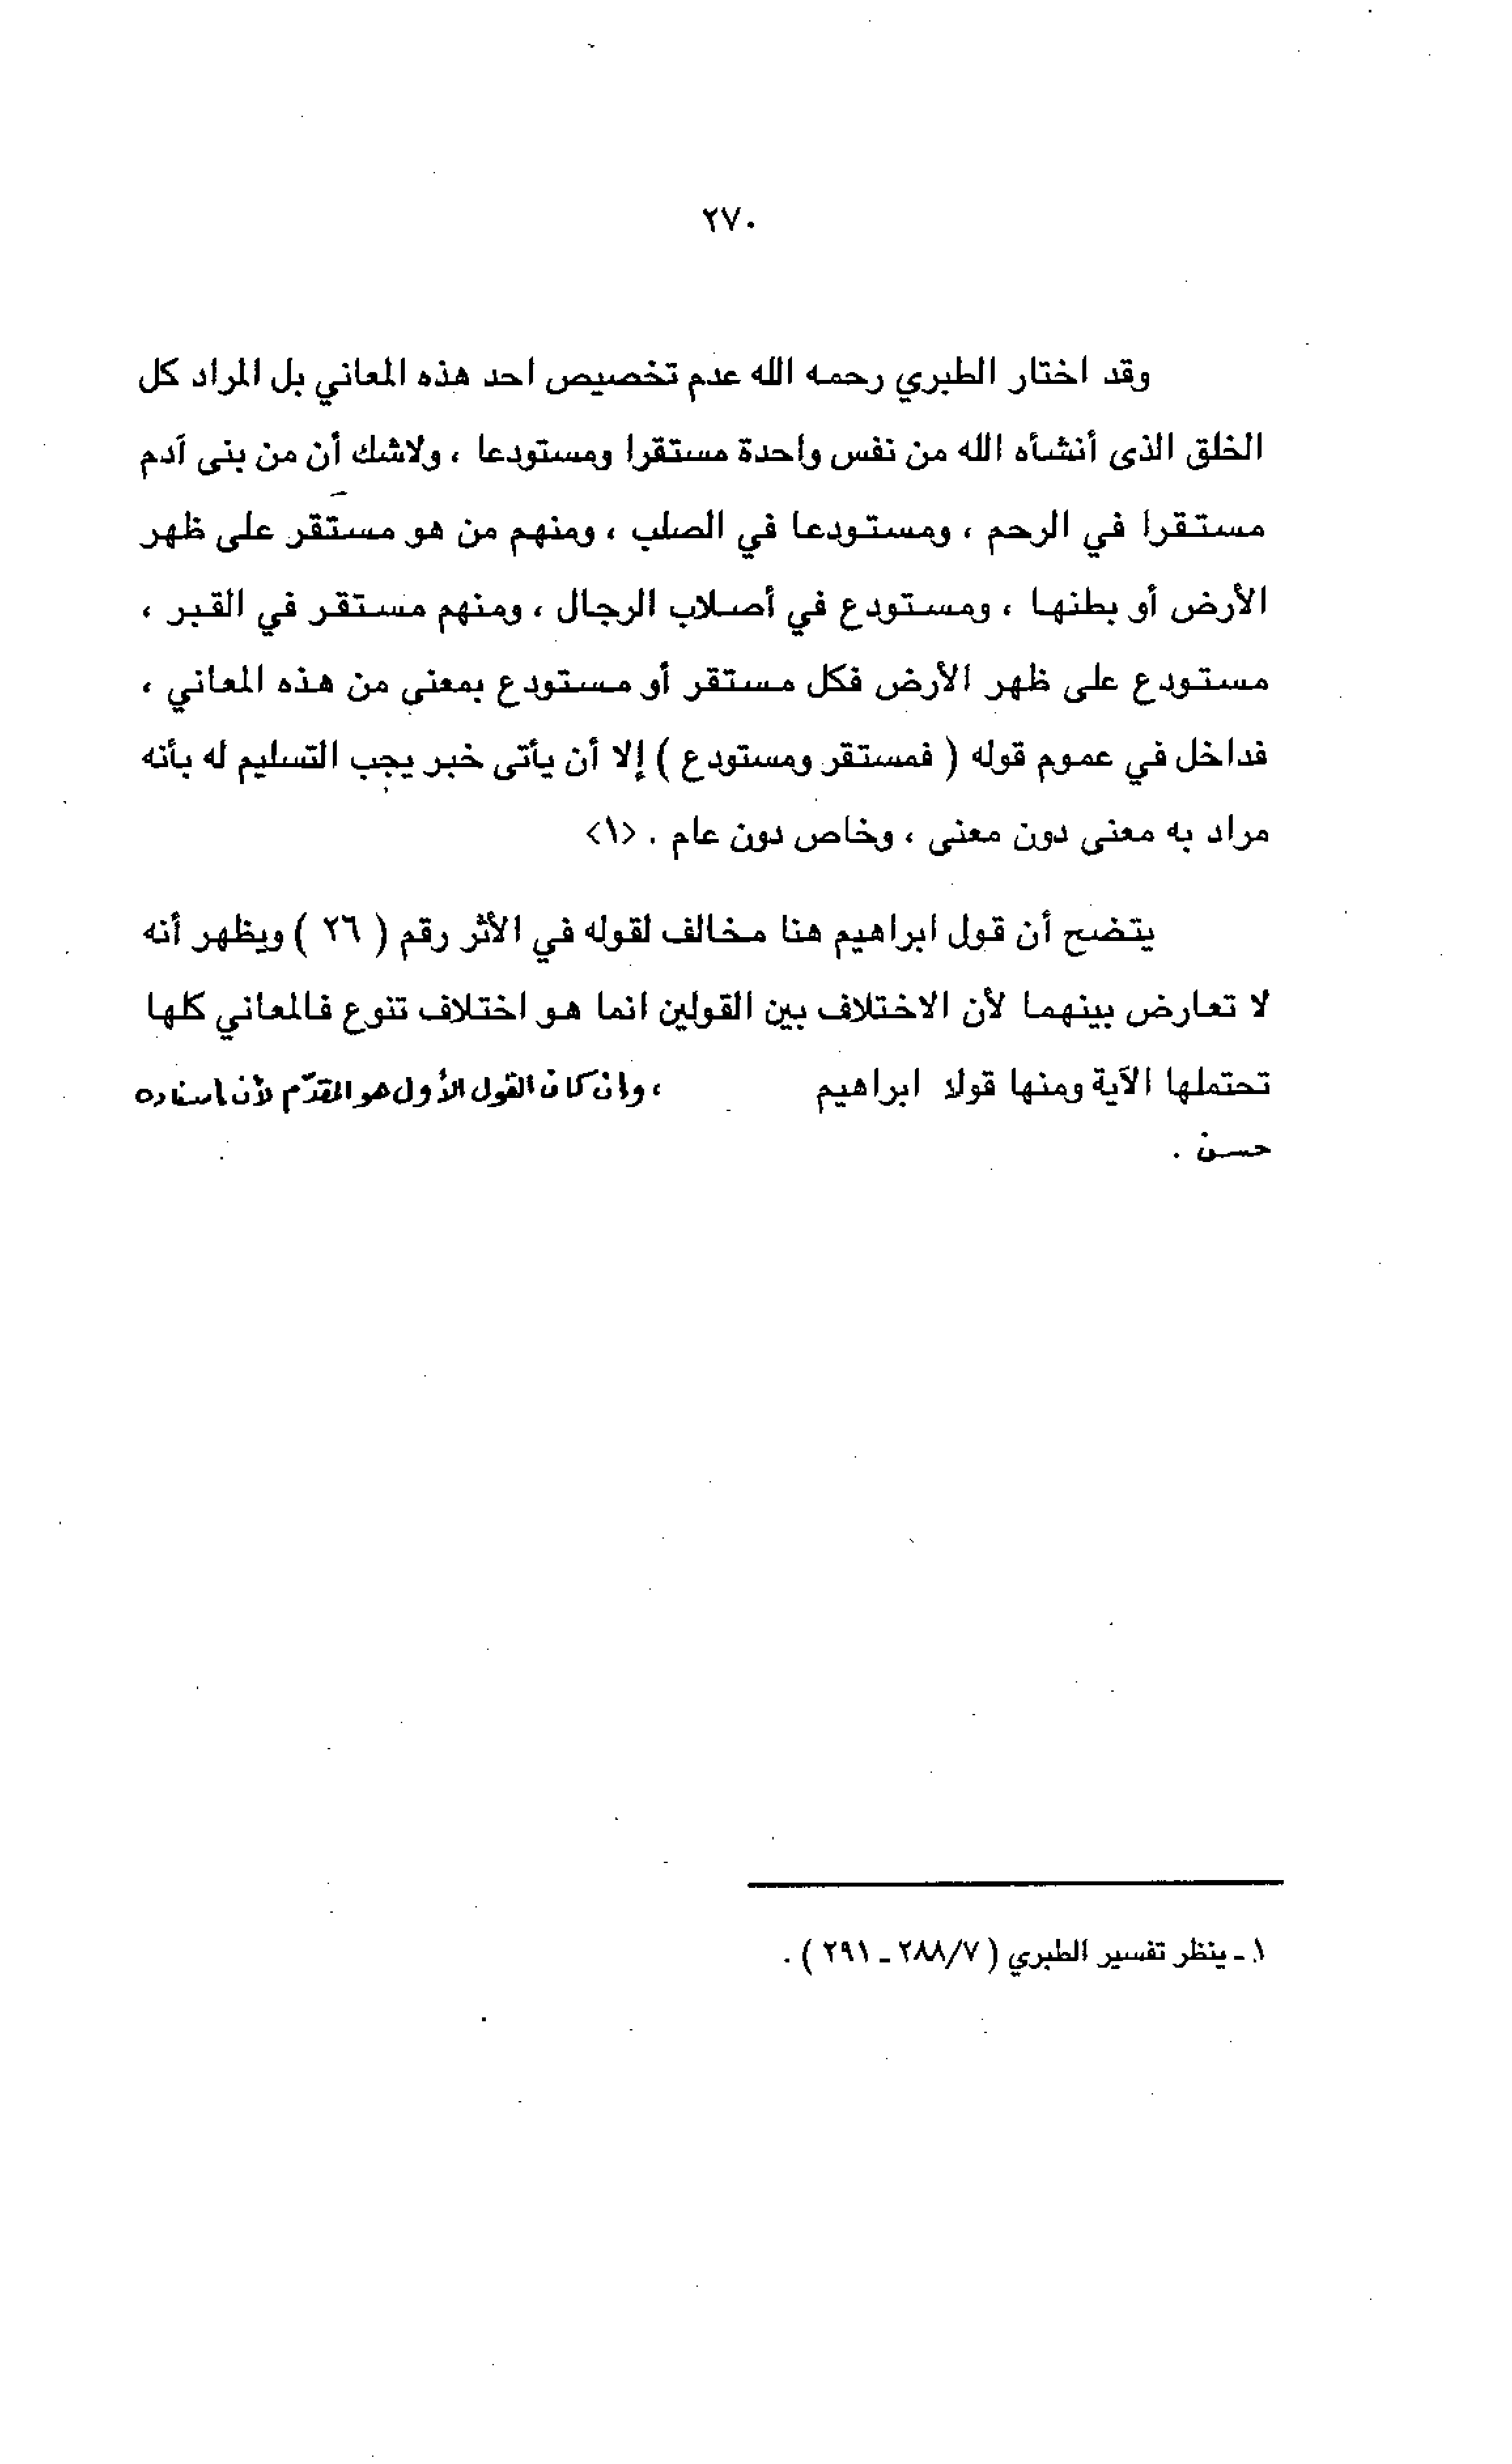 ٢٧٠
وقد اختار الطبري رحمه الله عدم تخصيص احد هذه المعاني بل المراد كل
الخلق الذى أنشأه الله من نفس واحدة مستقرا ومستودعا ، ولاشك أن من بنى آدم
مستقرا في الرحم ، ومستودعا في الصلب ، ومنهم من هو مستقر على ظهر
الأرض أو بطنها ، ومستودع في أصلاب الرجال ، ومنهم مستقر في القبر ،
مستودع على ظهر الأرض فكل مستقر أو مستودع بمعنى من هذه المعاني ،
فداخل في عموم قوله ( فمستقر ومستودع ) إلا أن يأتى خبر يجب التسليم له بأنه
مراد به معنى دون معنى ، وخاص دون عام . <١>
يتضح أن قول ابراهيم هنا مخالف لقوله في الأثر رقم ( ٢٦ ) ويظهر أنه
لا تعارض بينهما لأن الاختلاف بين القولين انما هو اختلاف تنوع فالمعاني كلها
تحتملها الآية ومنها قولا ابراهيم ، وان كان القول الأول هو المقدّم لأن اسناده
حسن .
١ ـ ينظر تفسير الطبري ( ٢٨٨/٧ ـ ٢٩١ ) .